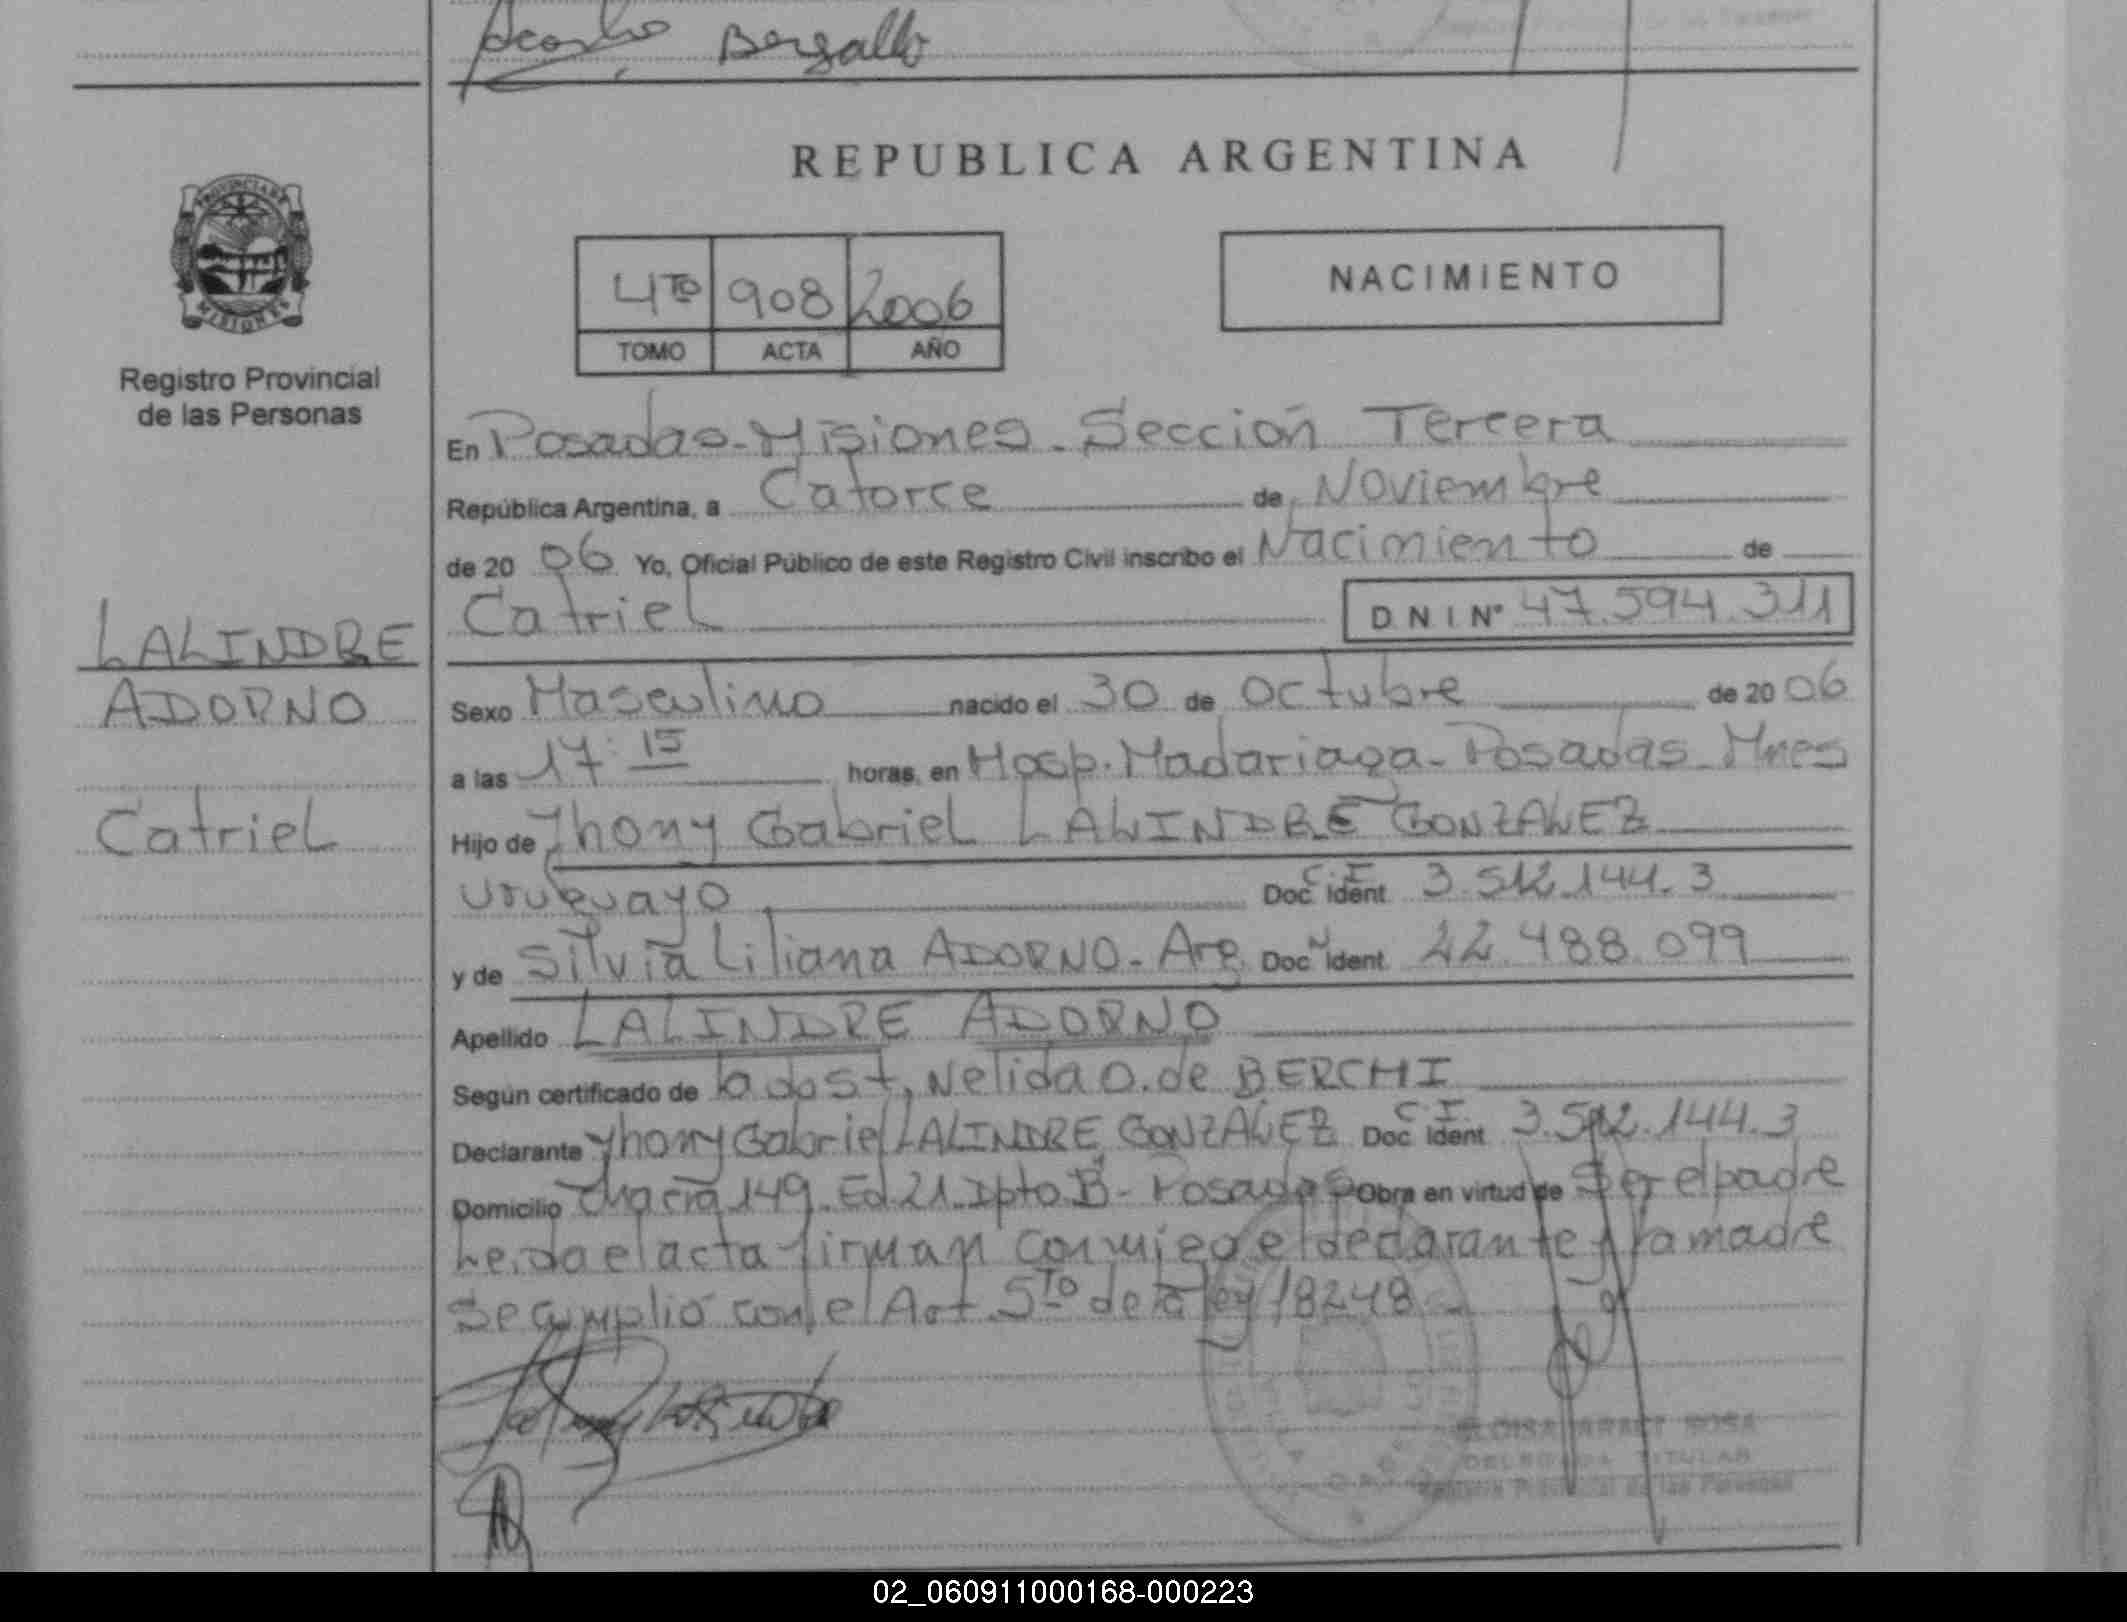 Bergallo
REPUBLICA ARGENTINA
PROVINCIA DE
MISIONES
Registro Provincial
de las Personas
4TO 908 2006
TOMO ACTA AÑO
NACIMIENTO
En Posadas - Misiones - Sección Tercera
República Argentina, a Catorce de Noviembre
de 20 06 Yo, Oficial Público de este Registro Civil inscribo el Nacimiento de
Catriel DNI Nº 47.594.311
LALINDRE
ADORNO
Catriel
Sexo Masculino nacido el 30 de Octubre de 20 06
a las 17:15 horas, en Hosp. Madariaga - Posadas - Mnes
Hijo de Jhony Gabriel LALINDRE GONZALEZ
Uruguayo C.I. Doc. Ident 3.512.144.3
y de Silvia Liliana ADORNO - Arg. Doc. Ident. 22.488.099
Apellido LALINDRE ADORNO
Según certificado de la obst, Nelida O. de BERCHI
Declarante Jhony Gabriel LALINDRE GONZALEZ C.I. Doc. Ident 3.512.144.3
Domicilio Chacra 149. Ed. 21. Dpto B - Posadas Obra en virtud de Ser el padre
Leida el acta firman conmigo el declarante y la madre
Se cumplió con el Art 5to de la Ley 18248
DELEGADA TITULAR
Registro Provincial de las Personas
02_060911000168-000223